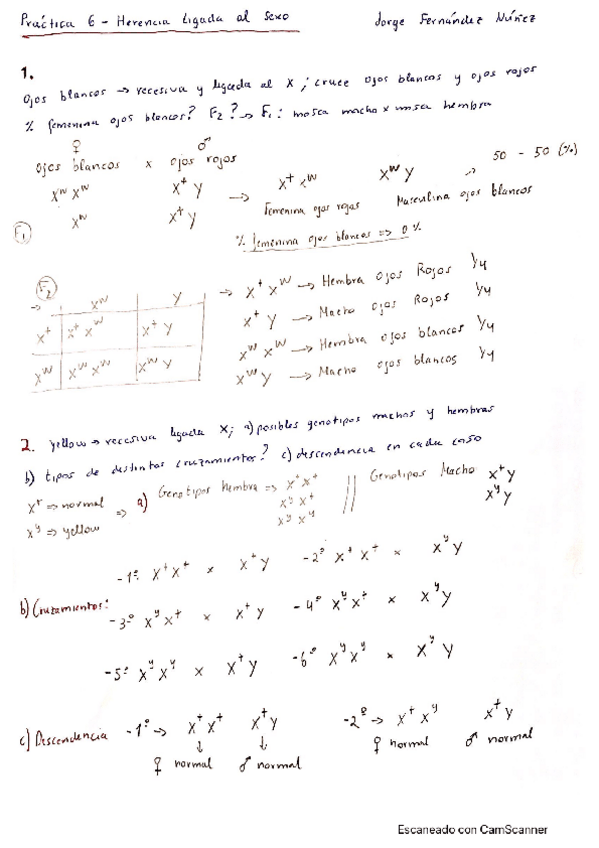 Práctica 6 - Herencia Ligada al Sexo Jorge Fernández Núñez
1.
Ojos blancos → recesiva y ligada al X ; cruce ojos blancos y ojos rojos
% femenina ojos blancos? F₂? → F₁ : mosca macho x mosca hembra
♀ ♂
Ojos blancos x Ojos rojos 50 - 50 (%)
Xʷ Xʷ X⁺ Y → X⁺ Xʷ Xʷ Y
Xʷ X⁺ Y Femenina ojos rojos Masculina ojos blancos
F₁ % femenina ojos blancos => 0 %
F₂
→ Xʷ Y → X⁺ Xʷ → Hembra Ojos Rojos 1/4
X⁺ X⁺ Xʷ X⁺ Y X⁺ Y → Macho Ojos Rojos 1/4
Xʷ Xʷ Xʷ Xʷ Y Xʷ Xʷ → Hembra ojos blancos 1/4
Xʷ Y → Macho ojos blancos 1/4
2. Yellow → recesiva ligada X; a) posibles genotipos machos y hembras
b) tipos de distintos cruzamientos? c) descendencia en cada caso
X⁺ => normal => a) Genotipos hembra => X⁺ X⁺ || Genotipos Macho X⁺ Y
Xʸ => yellow Xʸ X⁺ Xʸ Y
Xʸ Xʸ
-1º X⁺ X⁺ x X⁺ Y -2º X⁺ X⁺ x Xʸ Y
b) Cruzamientos: -3º Xʸ X⁺ x X⁺ Y -4º Xʸ X⁺ x Xʸ Y
-5º Xʸ Xʸ x X⁺ Y -6º Xʸ Xʸ x Xʸ Y
c) Descendencia -1º → X⁺ X⁺ X⁺ Y -2º → X⁺ Xʸ X⁺ Y
↓ ↓
♀ normal ♂ normal ♀ normal ♂ normal
Escaneado con CamScanner